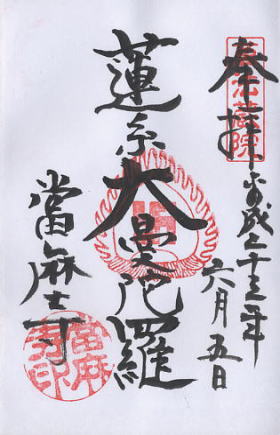 奉拝
平成二十三年
六月五日
蓮糸大曼陀羅
當麻寺
當麻寺印